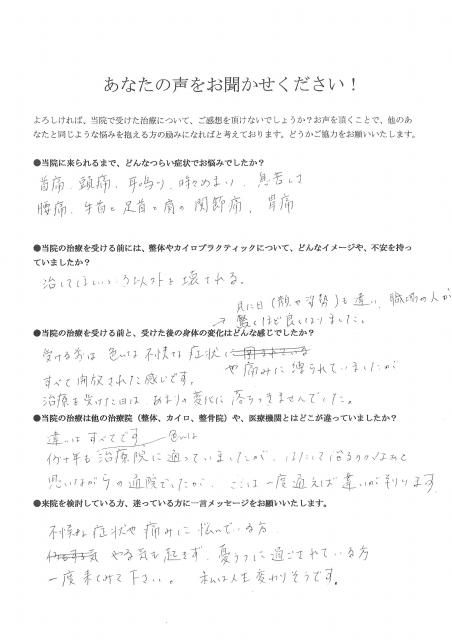 あなたの声をお聞かせください！
よろしければ、当院で受けた治療について、ご感想を頂けないでしょうか？お声を頂くことで、他のあ
なたと同じような悩みを抱える方の励みになればと考えております。どうかご協力をお願いいたします。
●当院に来られるまで、どんなつらい症状でお悩みでしたか？
首痛、頭痛、耳鳴り、時々めまい、息苦しさ
腰痛、手首と足首と肩の関節痛、胃痛
●当院の治療を受ける前には、整体やカイロプラクティックについて、どんなイメージや、不安を持っ
ていましたか？
治してほしいという以外を壊される。
見た目(顔や姿勢)も違い、職場の人が
→驚くほど良くなりました。
●当院の治療を受ける前と、受けた後の身体の変化はどんな感じでしたか？
受ける前は色いな不快な症状に
や痛みに縛られていましたが
すべて開放された感じです。
治療を受けた日は、あまりの変化に落ちつきませんでした。
●当院の治療は他の治療院（整体、カイロ、整骨院）や、医療機関とはどこが違っていましたか？
違いはすべてです。
色いな
何十年も治療院に通っていましたが、はたして治るのかなぁと
思いながらの通院でしたが、ここは一度通えば違いが判ります
●来院を検討している方、迷っている方に一言メッセージをお願いいたします。
不快な症状や痛みに悩んでいる方
やる気も起きず、憂うつに過ごされている方
一度来てみて下さい。 私は人生変わりそうです。